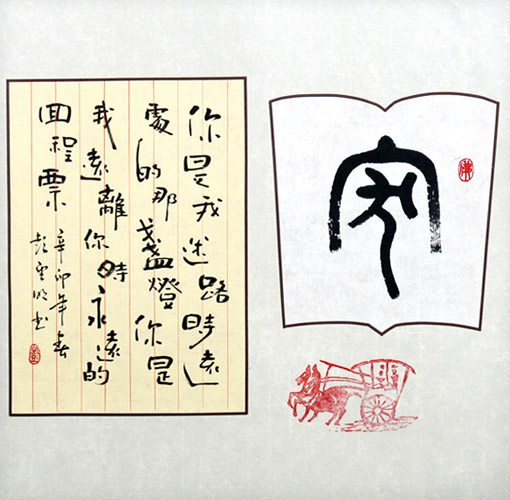 你是我迷路時遠
處的那盞燈你是
我遠離你時永遠的
回程票
辛卯年春